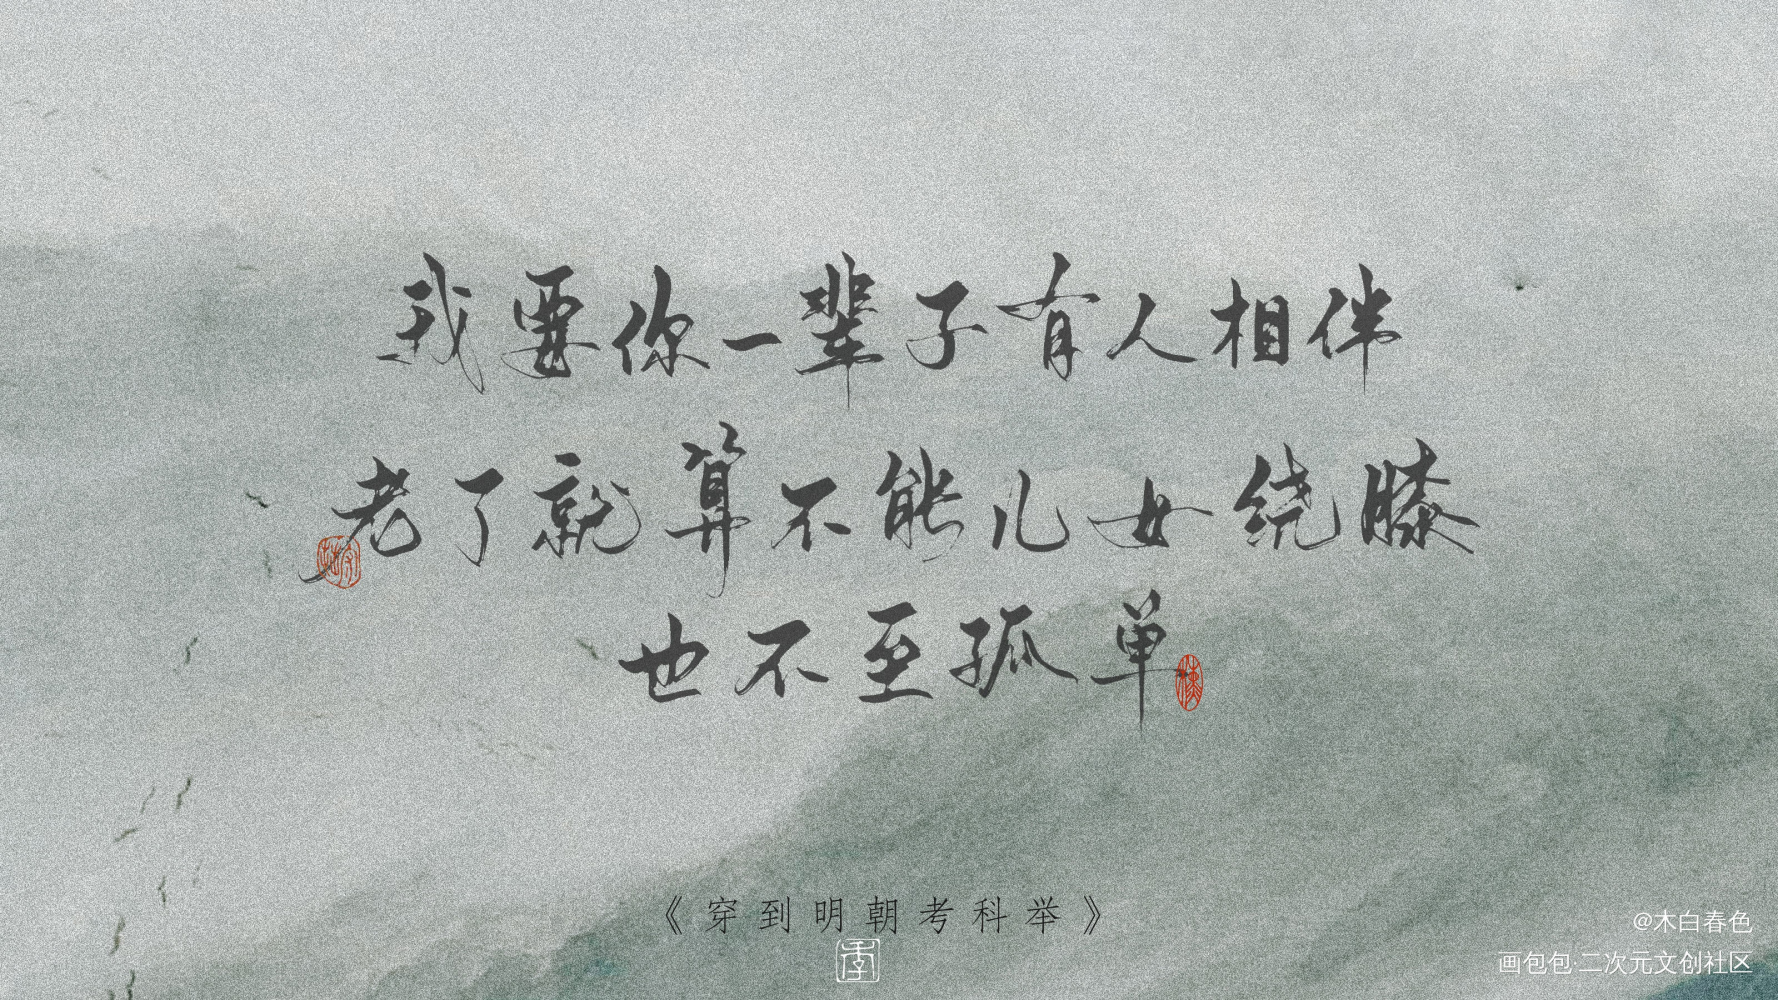 我要你一辈子有人相伴
老了就算不能儿女绕膝
也不至孤单
《穿到明朝考科举》
@木白春色
画包包·二次元文创社区